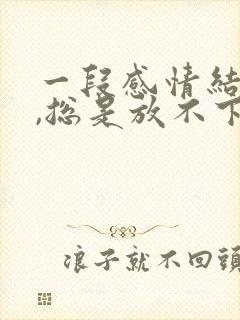 一段感情結
,總是放不下
浪子就不回頭